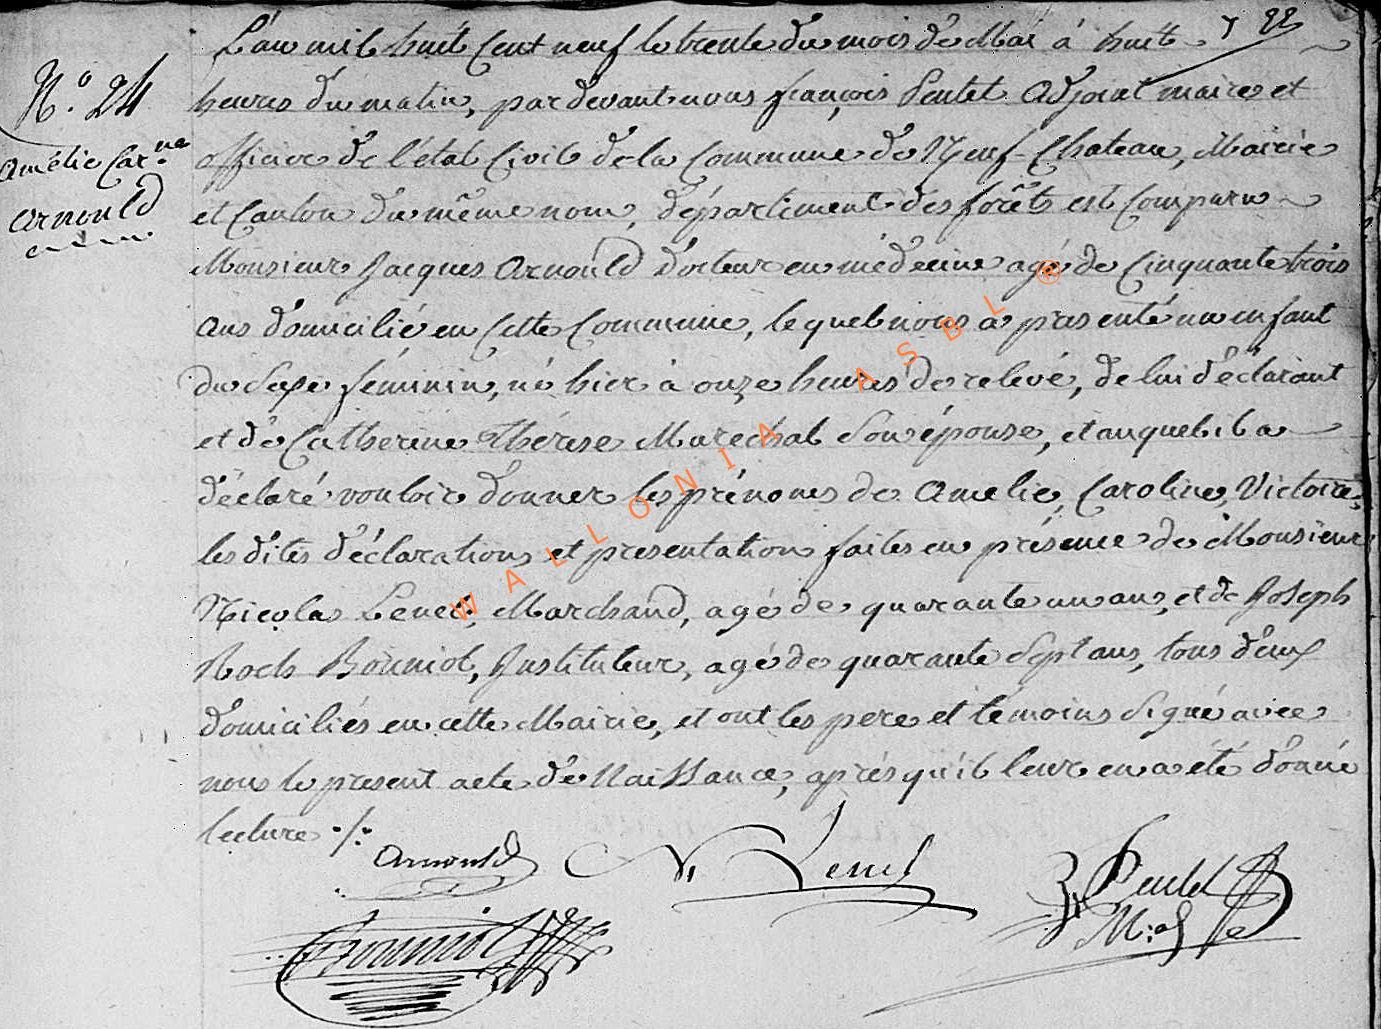 22
L'an mil huit Cent neuf le trente du mois de Mai à huit
N.° 24
heures du matin, pardevant nous françois Pentet Adjoint maire et
Amélie Car.ne
officier de l'état Civil de la Commune de Neuf-Chateau, Mairie
Arnould
et Canton du même nom, département des forêts est Comparu
Monsieur Jacques Arnould docteur en médecine agé de Cinquante trois
Ans domicilié en Cette Commune, lequel nous a presenté un enfant
du Sexe féminin, né hier à onze heures de relevé, de lui déclarant
et de Catherine Thérèse Marechal Son épouse, et auquel il a
déclaré vouloir donner les prénoms de Amelie, Caroline, Victoire,
les dites déclaration et presentation faites en présence de Monsieur
Nicolas Lenel, Marchand, agé de quarante un ans, et de Joseph
Roch Bouniol, Instituteur, agé de quarante Sept ans, tous deux
domiciliés en cette Mairie, et ont les pere et témoins Signé avec
nous le present acte de Naissance, après qu'il leur en a été donné
lecture ./.
Arnould
N. Lenel
Pentet
Bouniol
WALLONIA ASBL ®